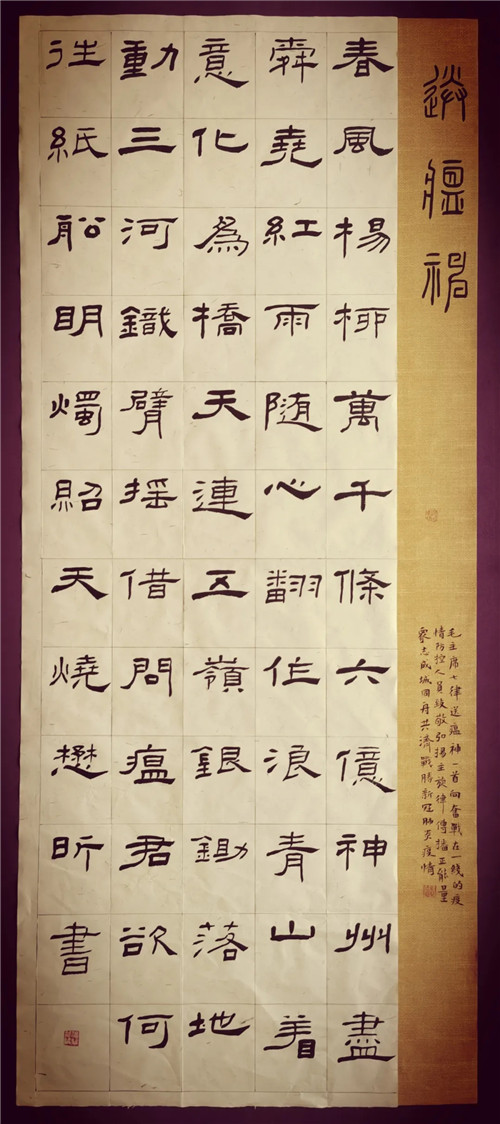 送瘟神
毛主席七律送瘟神一首向奮戰在一綫的疫
情防控人員致敬弘揚主旋律傳播正能量
衆志成城同舟共濟戰勝新冠肺炎疫情
春風楊柳萬千條六億神州盡
舜堯紅雨随心翻作浪青山着
意化為橋天連五嶺銀鋤落地
動三河鐵臂摇借問瘟君欲何
往紙船明燭紹天燒懋昕書